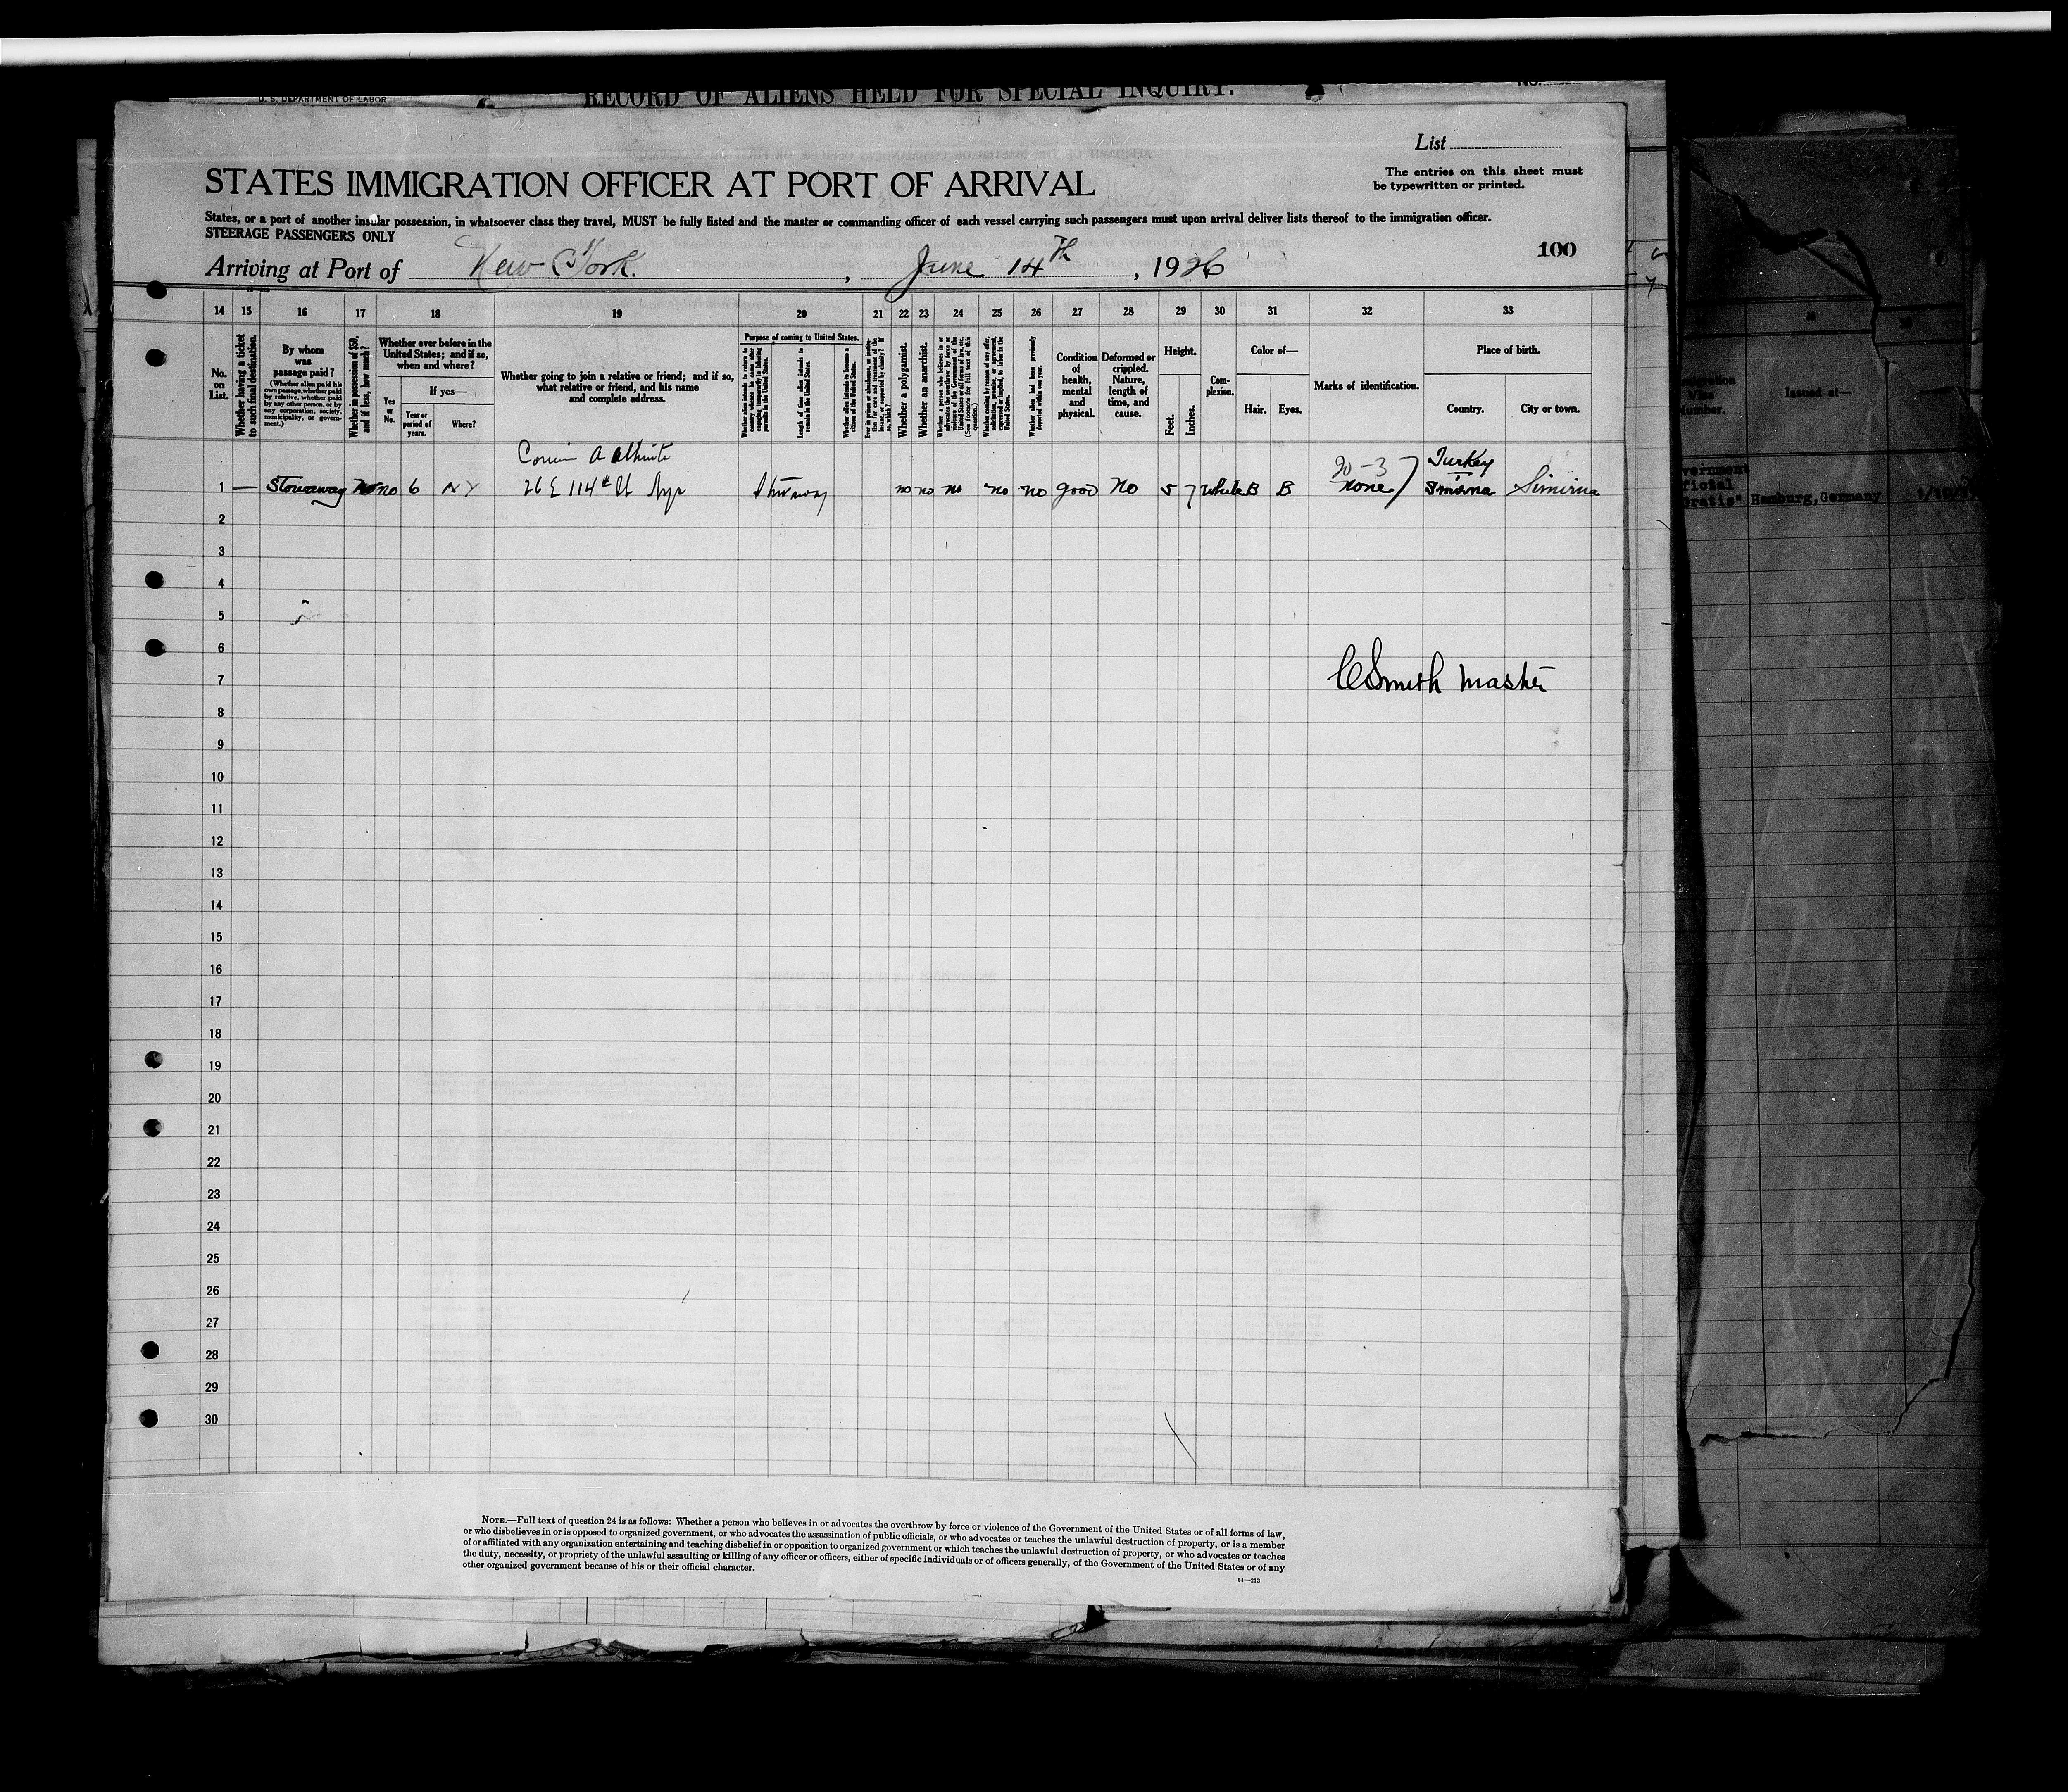 U. S. DEPARTMENT OF LABOR
RECORD OF ALIENS HELD FOR SPECIAL INQUIRY.
No.
List
The entries on this sheet must
be typewritten or printed.
STATES IMMIGRATION OFFICER AT PORT OF ARRIVAL
States, or a port of another insular possession, in whatsoever class they travel, MUST be fully listed and the master or commanding officer of each vessel carrying such passengers must upon arrival deliver lists thereof to the immigration officer.
STEERAGE PASSENGERS ONLY
100
Arriving at Port of New York. , June 14th , 1926
14 15 16 17 18 19 20 21 22 23 24 25 26 27 28 29 30 31 32 33
No. on List.
Whether having a ticket to such final destination.
By whom was passage paid?
(Whether alien paid his own passage, whether paid by relative, whether paid by any other person, or by any corporation, society, municipality, or government.)
Whether in possession of $50, and if less, how much?
Whether ever before in the United States; and if so, when and where?
Yes or No.
If yes—
Year or period of years.
Where?
Whether going to join a relative or friend; and if so, what relative or friend, and his name and complete address.
Purpose of coming to United States.
Whether alien intends to return to country whence he came after engaging temporarily in laboring pursuits in the United States.
Length of time alien intends to remain in the United States.
Whether alien intends to become a citizen of the United States.
Ever in prison or almshouse, or institution for care and treatment of the insane, or supported by charity? If so, which?
Whether a polygamist.
Whether an anarchist.
Whether coming by reason of any offer, solicitation, promise, or agreement, expressed or implied, to labor in the United States.
Whether alien had been previously deported within one year.
Condition of health, mental and physical.
Deformed or crippled. Nature, length of time, and cause.
Height.
Feet.
Inches.
Complexion.
Color of—
Hair.
Eyes.
Marks of identification.
Place of birth.
Country.
City or town.
20-3 Turkey
1 — Stowaway No no 6 NY 26 E 114th St Nyc no no no no no good No 5 7 white B B none Smirna Simirna
2
3
4
5
6
7 C Smith Master
8
9
10
11
12
13
14
15
16
17
18
19
20
21
22
23
24
25
26
27
28
29
30
Issued at—
Hamburg, Germany
NOTE.—Full text of question 24 is as follows: Whether a person who believes in or advocates the overthrow by force or violence of the Government of the United States or of all forms of law,
or who disbelieves in or is opposed to organized government, or who advocates the assassination of public officials, or who advocates or teaches the unlawful destruction of property, or is a member
of or affiliated with any organization entertaining and teaching disbelief in or opposition to organized government or which teaches the unlawful destruction of property, or who advocates or teaches
the duty, necessity, or propriety of the unlawful assaulting or killing of any officer or officers, either of specific individuals or of officers generally, of the Government of the United States or of any
other organized government because of his or their official character.
14—213